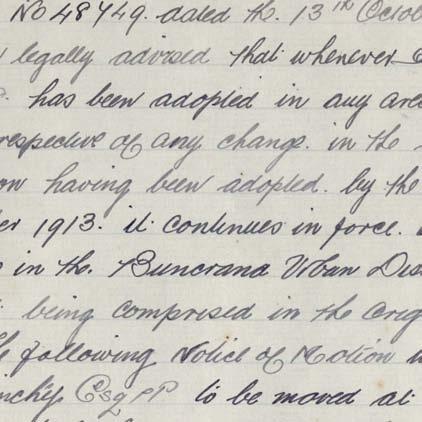 No 48749. dated the. 13th Octob
legally advised that whenever
has been adopted in any area
respective of any change. in the
on having been adopted. by the
er 1913. it continues in force.
in the. Buncrana Urban Dis
being comprised in the orig
he following Notice of Motion
Esq PP to be moved at